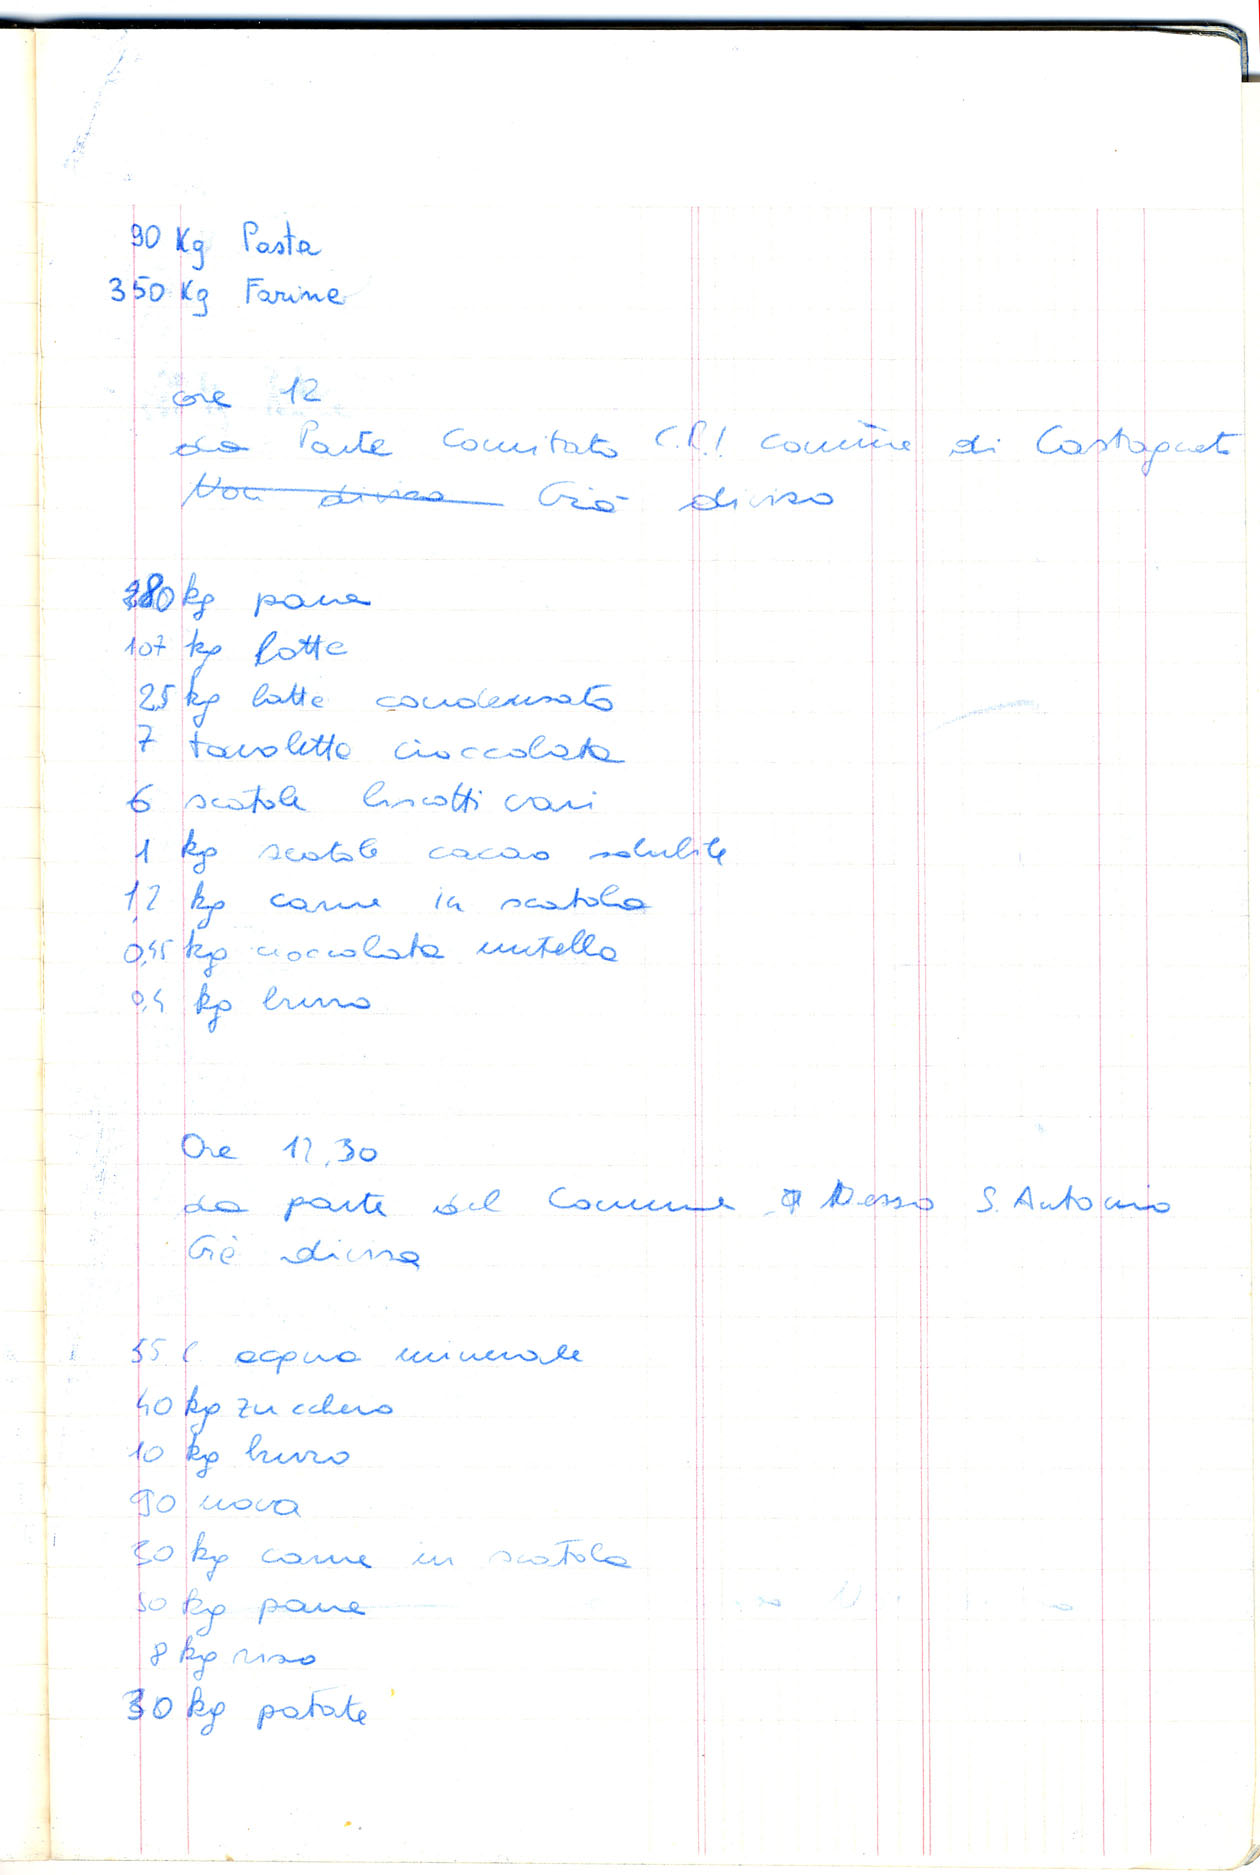 90 Kg Pasta
350 Kg Farina
ore 12
da Parte Comitato C.R.I. comune di Castagneto
Non diviso Già diviso
280 kg pane
107 kg latte
25 kg latte condensato
7 tavolette cioccolata
6 scatole biscotti vari
1 kg scatole cacao solubile
1,2 kg carne in scatola
0,45 kg cioccolata nutella
0,4 kg burro
Ore 12,30
da parte del Comune Desso S. Antonio
Già divisa
55 l acqua minerale
40 kg zucchero
10 kg burro
90 uova
30 kg carne in scatola
50 kg pane
8 kg riso
30 kg patate